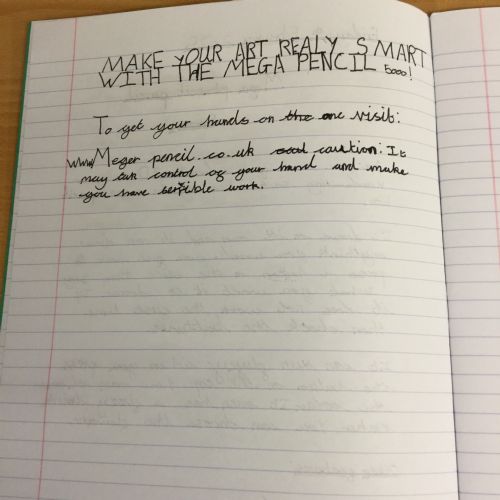 MAKE YOUR ART REALY SMART
WITH THE MEGA PENCIL 5000!
To get your hands on the one visit:
www.Meger pencil.co.uk caution: It
may control of your hand and make
you have terrible work.